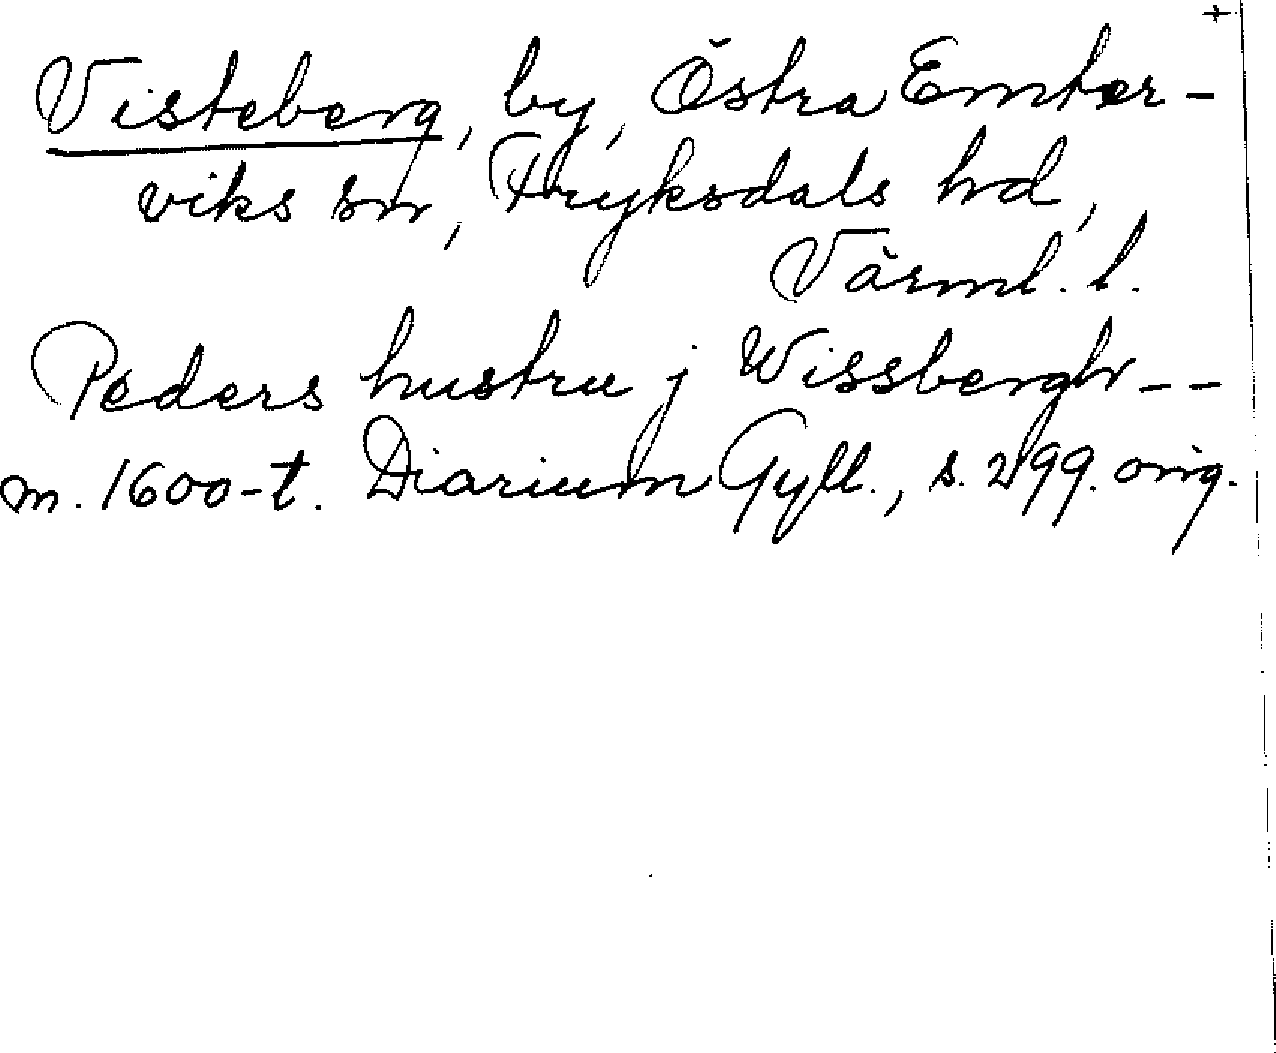 Visteberg, by, Östra Emter-
viks sn, Fryksdals hd,
Värml. l.
Peders hustru j Wissbergh--
m. 1600-t. Diarium Gyll., s. 299. orig.